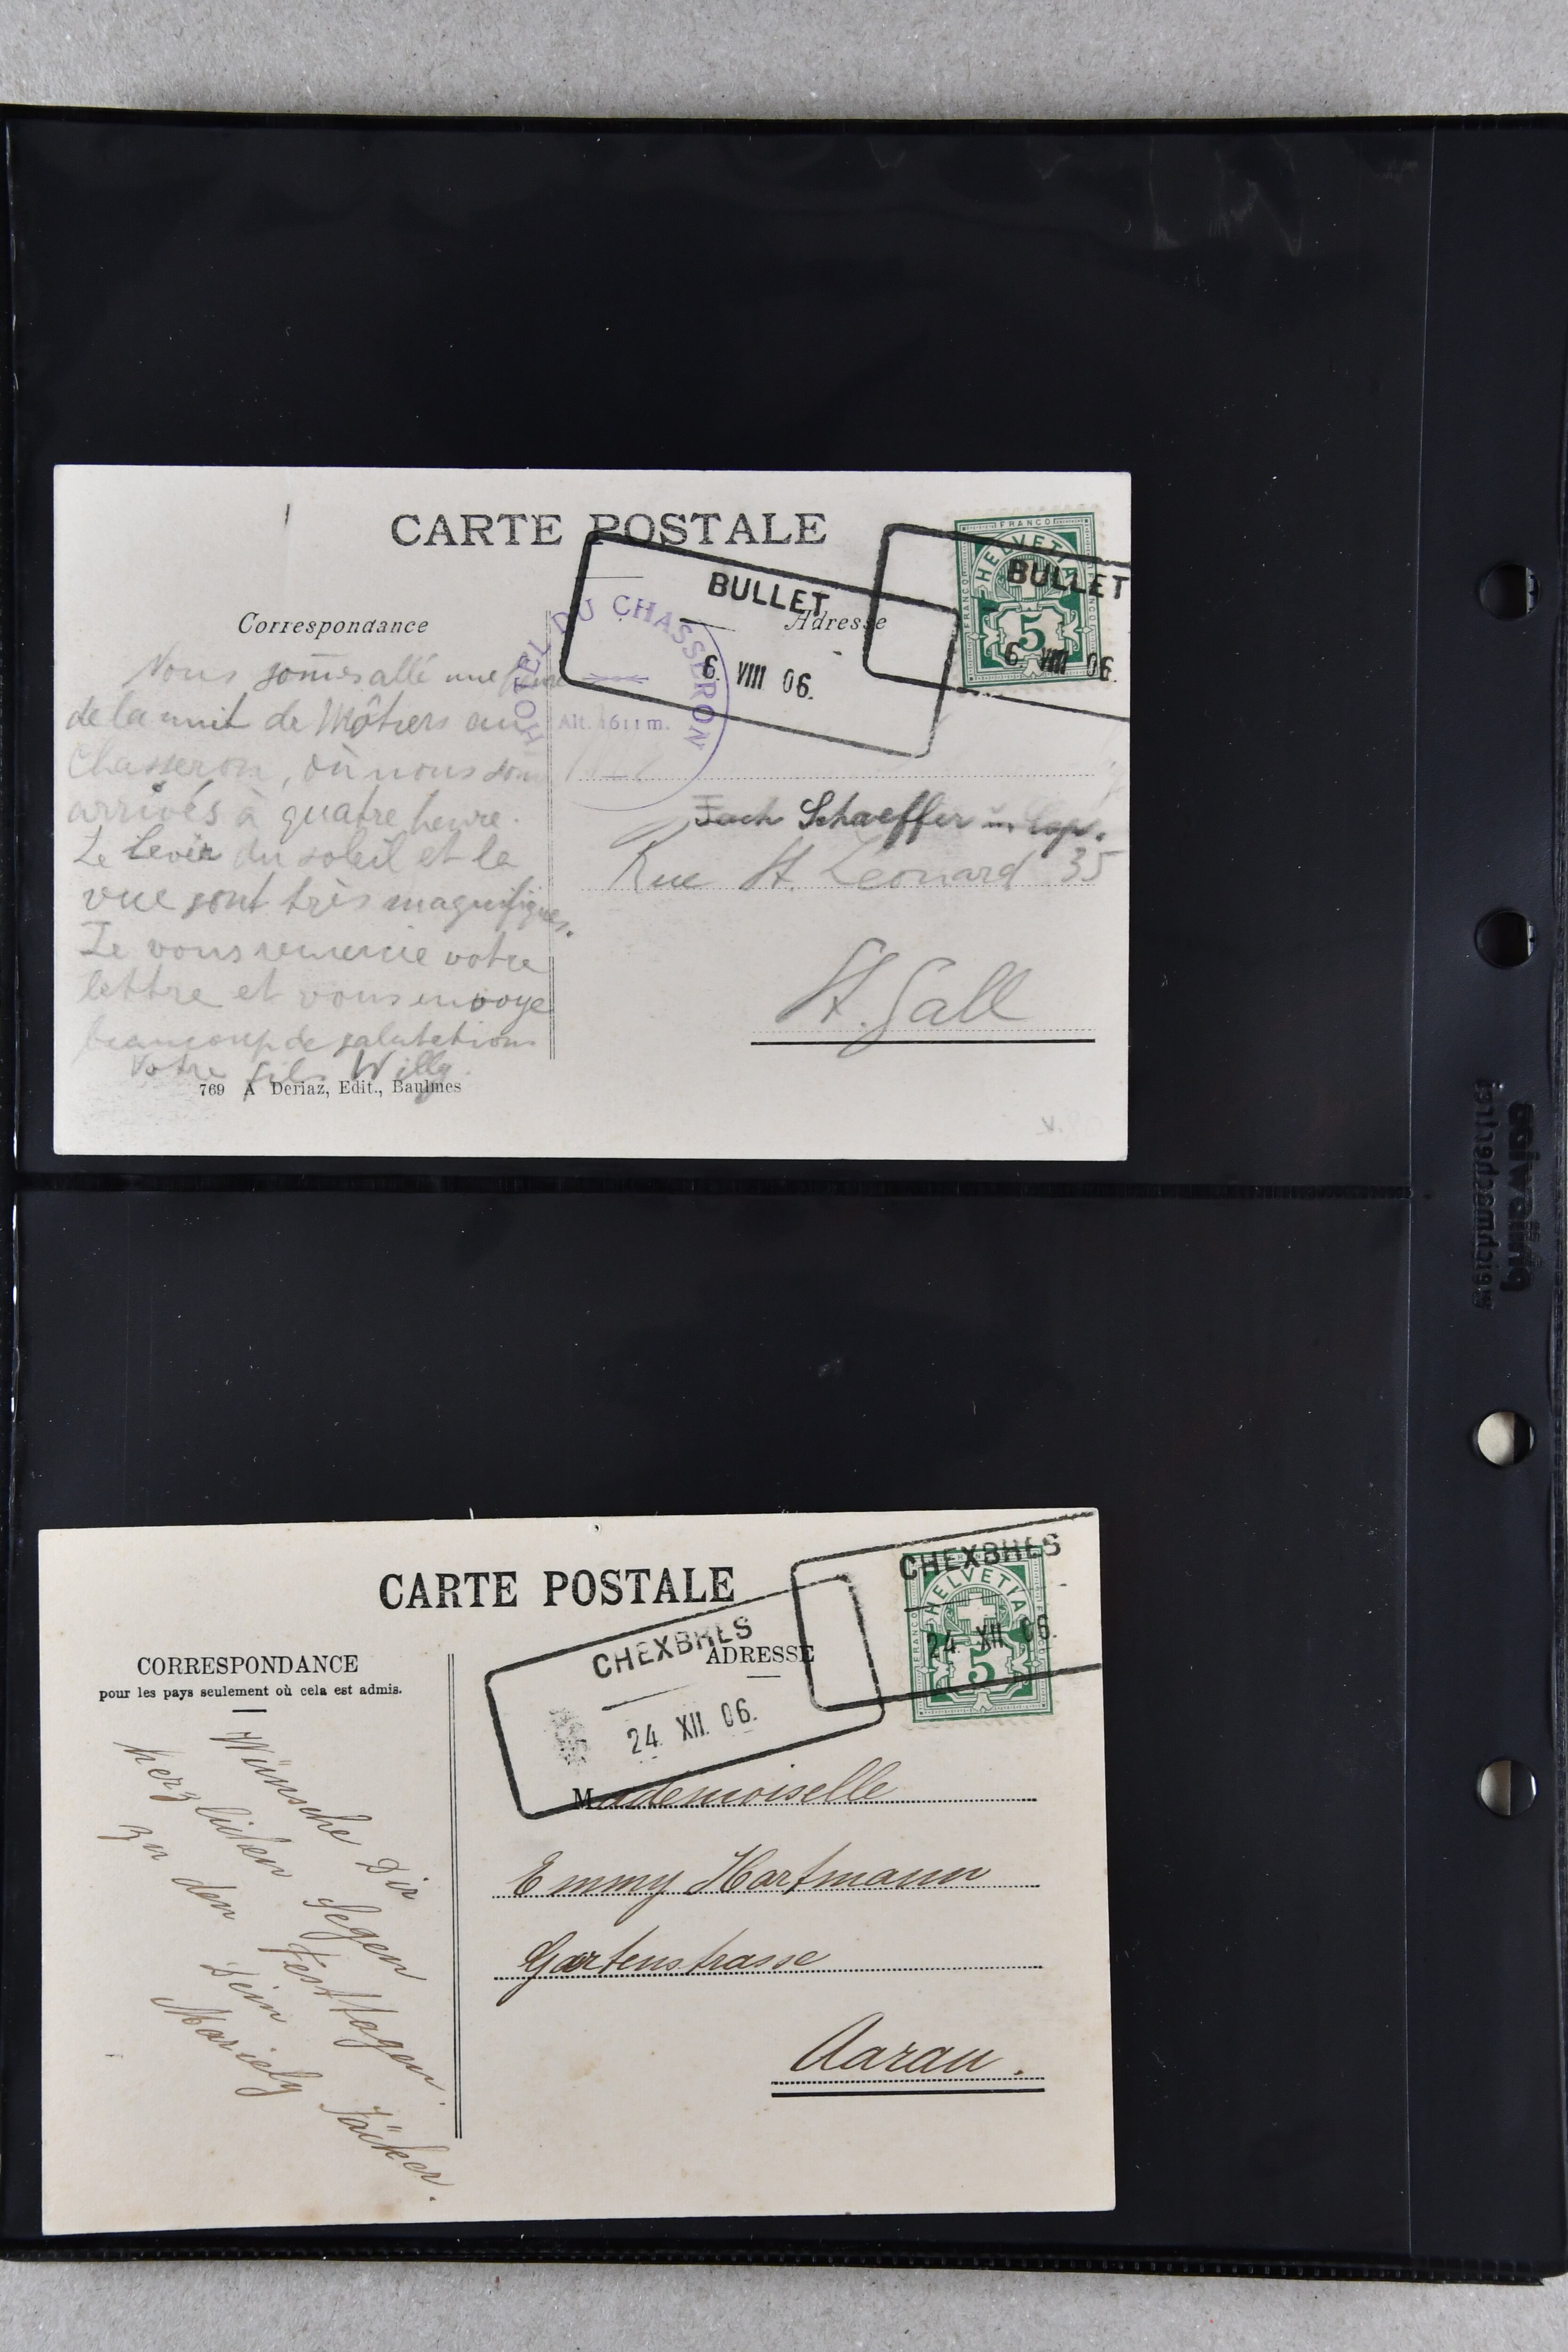 CARTE POSTALE
FRANCO
HELVETIA
FRANCO
FRANCO
5
BULLET
6. VIII 06.
BULLET
6. VIII 06.
Correspondance
Adresse
HOTEL DU CHASSERON
Alt. 1611 m.
Nous som̄es allé une
de la nuit de Môtiers au
Chasseron, où nous som
arrivés à quatre heure.
Le Levér du soleil et la
vue sont très magnifiques.
Je vous remercie votre
lettre et vous envoye
beaucoup de salutations
Votre fils Willy.
Schaeffer
Rue St. Leonard 35
St. Gall
769 A Deriaz, Edit., Baulmes
CARTE POSTALE
HELVETIA
FRANCO
5
CHEXBRES
24. XII. 06.
CHEXBRES
24. XII. 06.
CORRESPONDANCE
pour les pays seulement où cela est admis.
ADRESSE
Wünsche Dir
herzlichen Segen
zu den Festtagen.
Dein
Mariely Jäcker.
Mademoiselle
Emmy Hartmann
Gartenstrasse
Aarau.